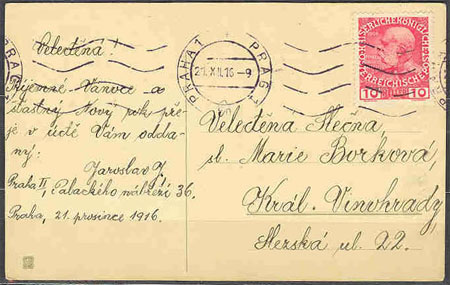 Veleděna!
Příjemné Vánoce a
šťastný Nový rok pře-
je v úctě Vám odda-
ný:
Jaroslav
Praha II, Palackého nábřeží 36.
Praha, 21. prosince 1916.
PRAHA 1 PRAG
21.XII.16-9
PRAG
PRAHA
10 10
Veleděna Slečna,
sl. Marie Borkova,
Král. Vinohrady
Slezská ul. 22.